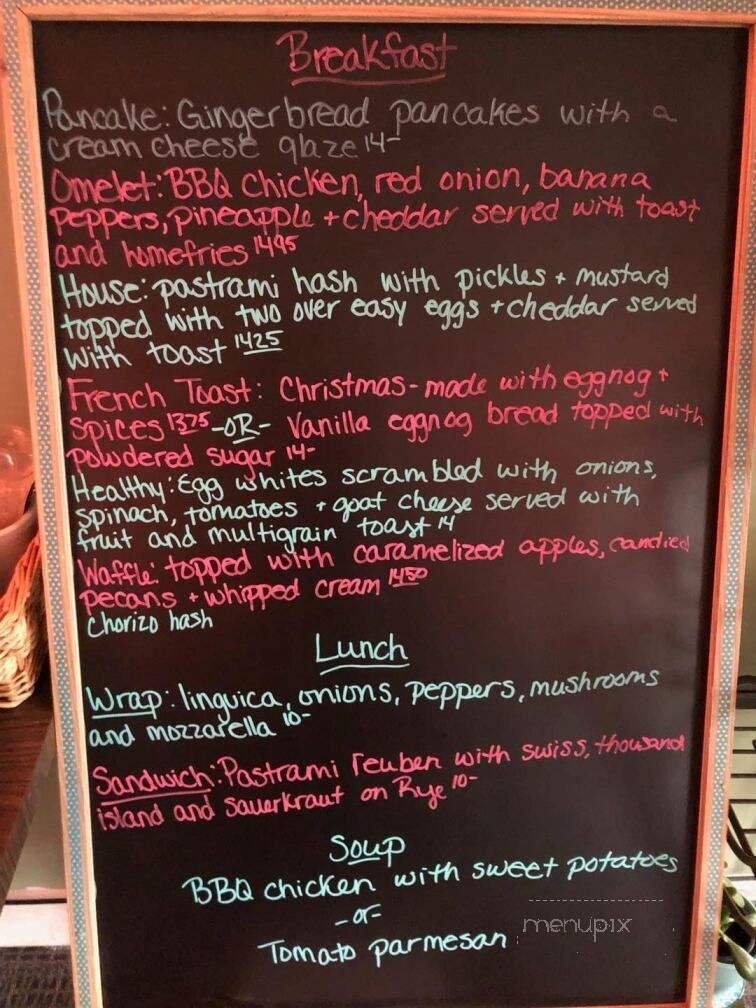 Breakfast
Pancake: Gingerbread pancakes with a
cream cheese glaze 14-
Omelet: BBQ chicken, red onion, banana
peppers, pineapple + cheddar served with toast
and homefries 1495
House: pastrami hash with pickles + mustard
topped with two over easy eggs + cheddar served
with toast 1425
French Toast: Christmas- made with eggnog +
spices 1375 -OR- Vanilla eggnog bread topped with
powdered sugar 14-
Healthy: Egg whites scrambled with onions,
spinach, tomatoes + goat cheese served with
fruit and multigrain toast 14
Waffle: topped with caramelized apples, candied
pecans + whipped cream 1450
Chorizo hash
Lunch
Wrap: linguica, onions, peppers, mushrooms
and mozzarella 10-
Sandwich: Pastrami reuben with swiss, thousand
island and sauerkraut on Rye 10-
Soup
BBQ chicken with sweet potatoes
-or-
Tomato parmesan
menupix